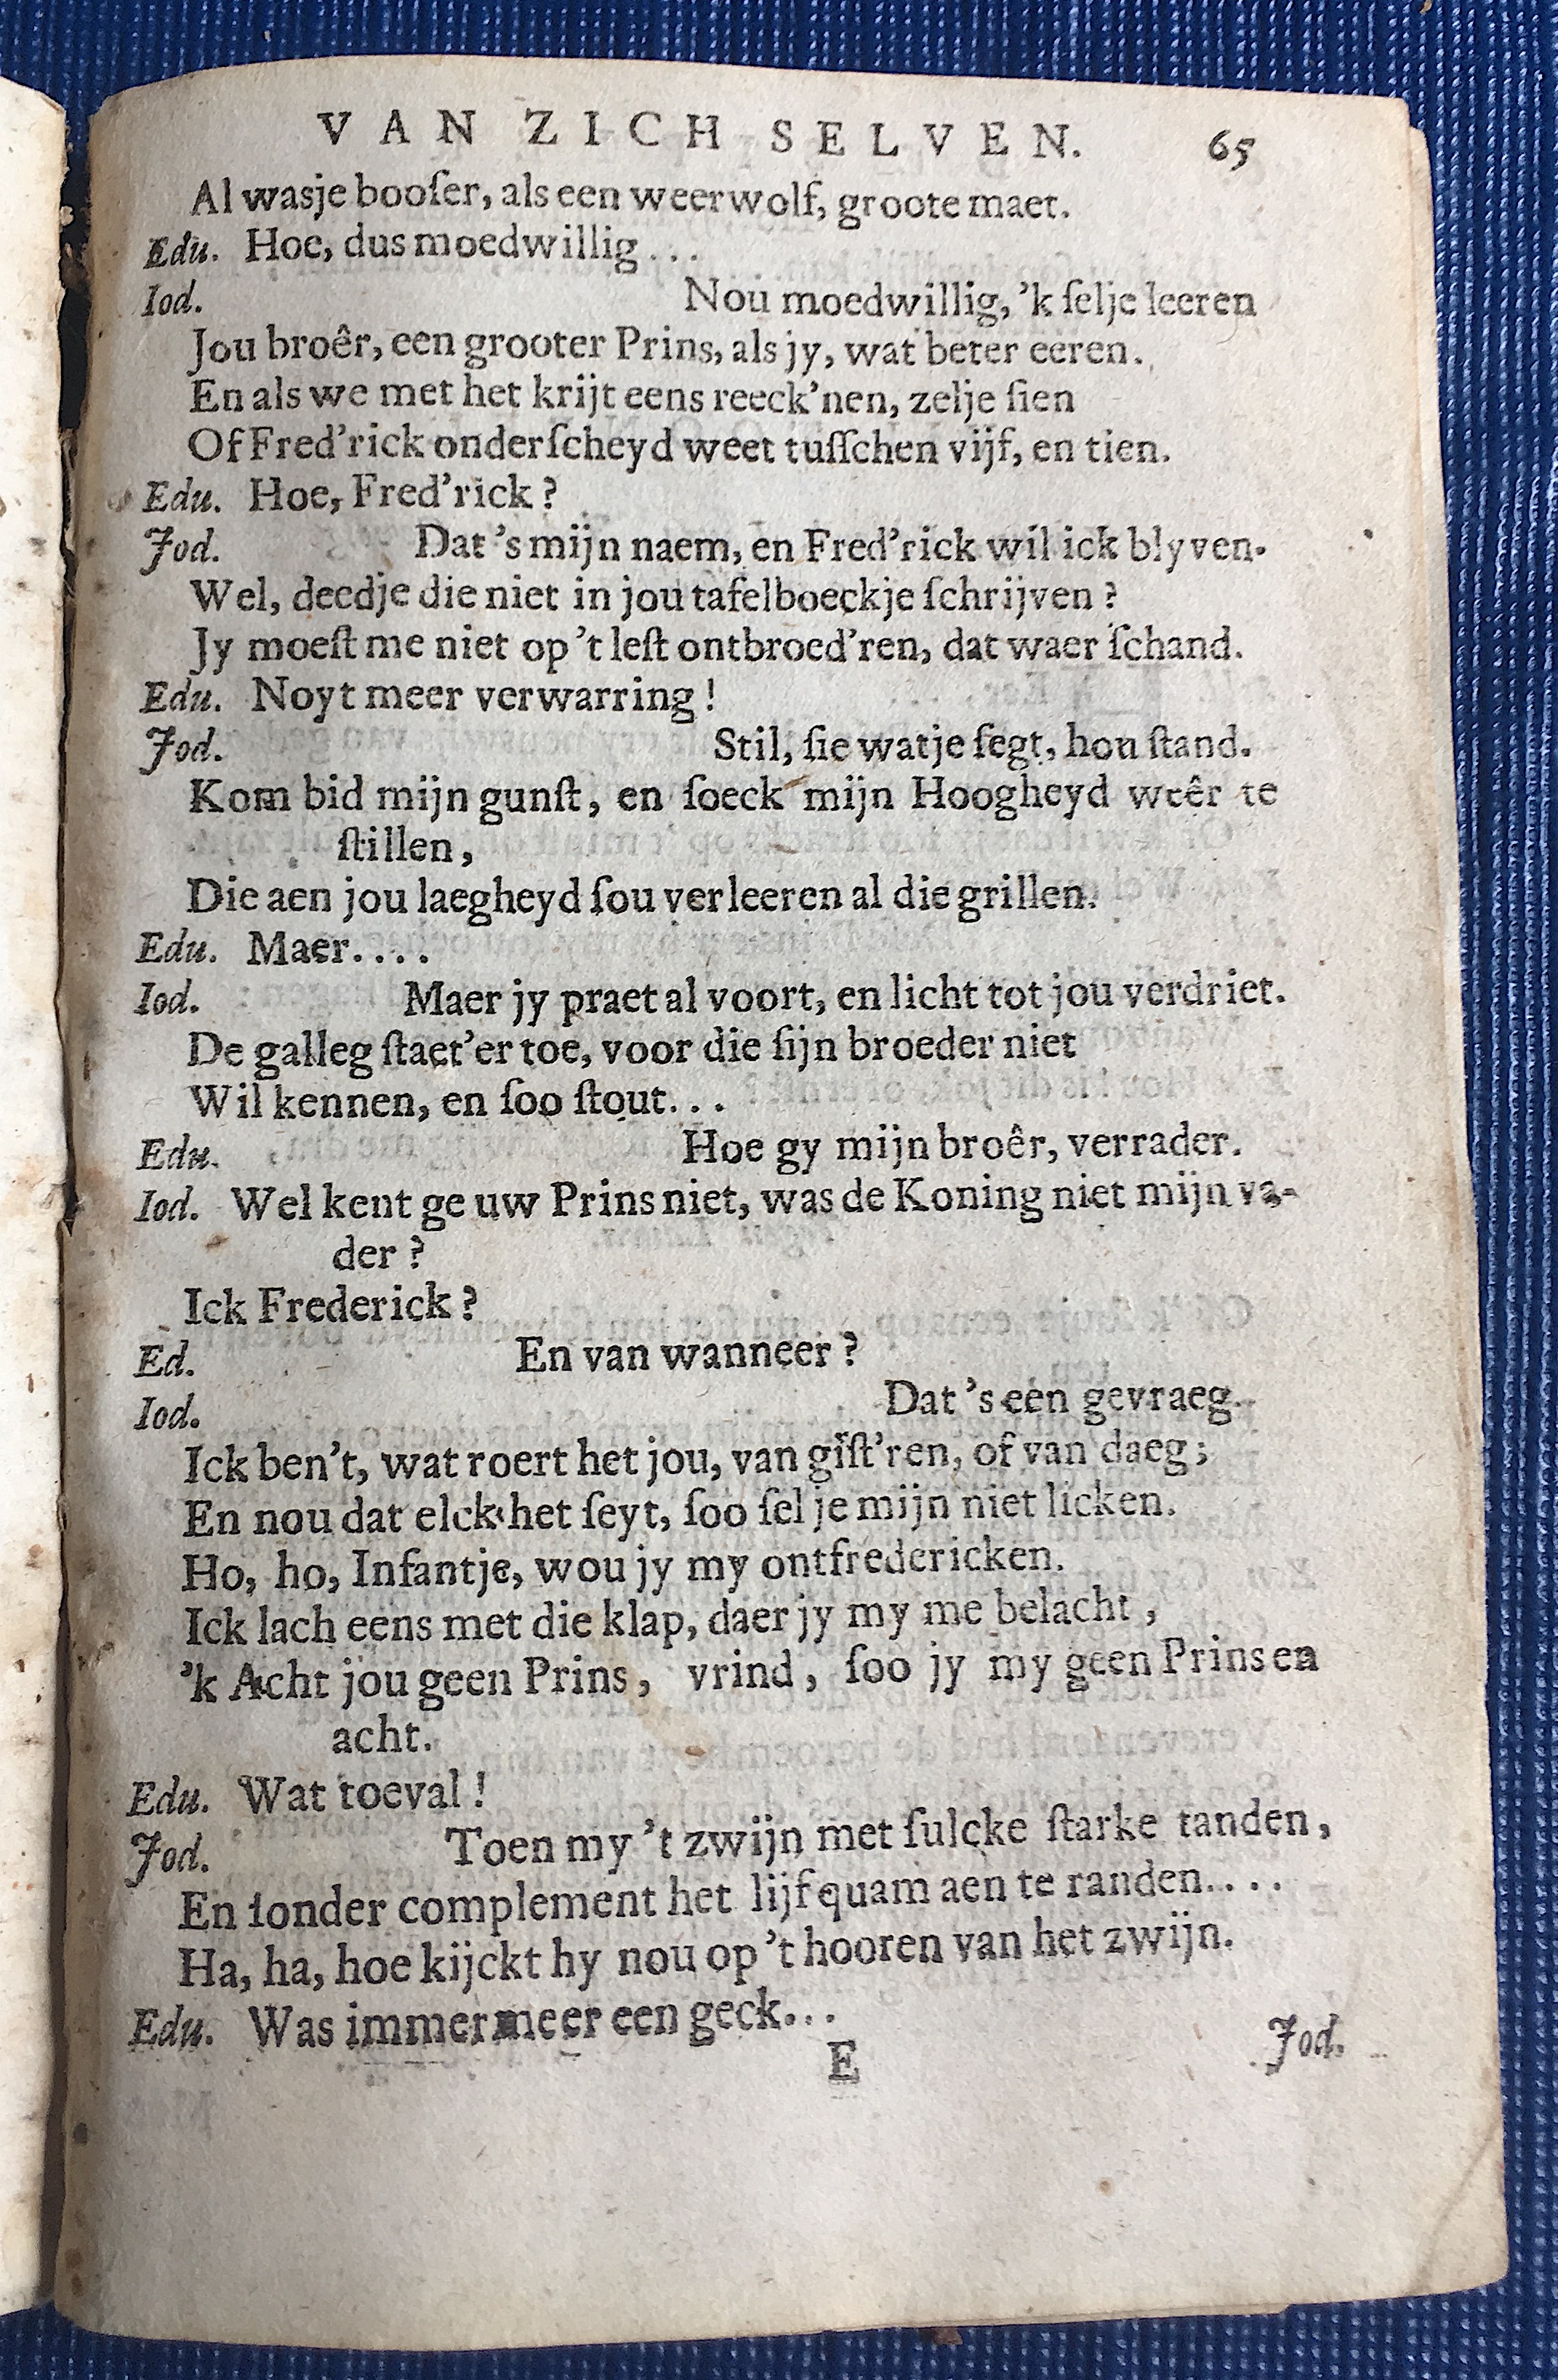 VAN ZICH SELVEN. 65
Al wasje booſer, als een weerwolf, groote maet.
Edu. Hoe, dus moedwillig...
Iod. Nou moedwillig, 'k ſelje leeren
Jou broêr, een grooter Prins, als jy, wat beter eeren.
En als we met het krijt eens reeck'nen, zelje ſien
Of Fred'rick onderſcheyd weet tuſſchen vijf, en tien.
Edu. Hoe, Fred'rick?
Jod. Dat 's mijn naem, en Fred'rick wil ick blyven.
Wel, deedje die niet in jou tafelboeckje ſchrijven?
Jy moeſt me niet op 't leſt ontbroed'ren, dat waer ſchand.
Edu. Noyt meer verwarring!
Jod. Stil, ſie watje ſegt, hou ſtand.
Kom bid mijn gunſt, en ſoeck mijn Hoogheyd weêr te
ſtillen,
Die aen jou laegheyd ſou verleeren al die grillen.
Edu. Maer....
Iod. Maer jy praet al voort, en licht tot jou verdriet.
De galleg ſtaet'er toe, voor die ſijn broeder niet
Wil kennen, en ſoo ſtout...
Edu. Hoe gy mijn broêr, verrader.
Iod. Wel kent ge uw Prins niet, was de Koning niet mijn va-
der?
Ick Frederick?
Ed. En van wanneer?
Iod. Dat 's een gevraeg.
Ick ben't, wat roert het jou, van giſt'ren, of van daeg;
En nou dat elck het ſeyt, ſoo ſel je mijn niet licken.
Ho, ho, Infantje, wou jy my ontfredericken.
Ick lach eens met die klap, daer jy my me belacht,
'k Acht jou geen Prins, vrind, ſoo jy my geen Prins en
acht.
Edu. Wat toeval!
Jod. Toen my 't zwijn met ſulcke ſtarke tanden,
En ſonder complement het lijf quam aen te randen....
Ha, ha, hoe kijckt hy nou op 't hooren van het zwijn.
Edu. Was immermeer een geck...
E Jod.